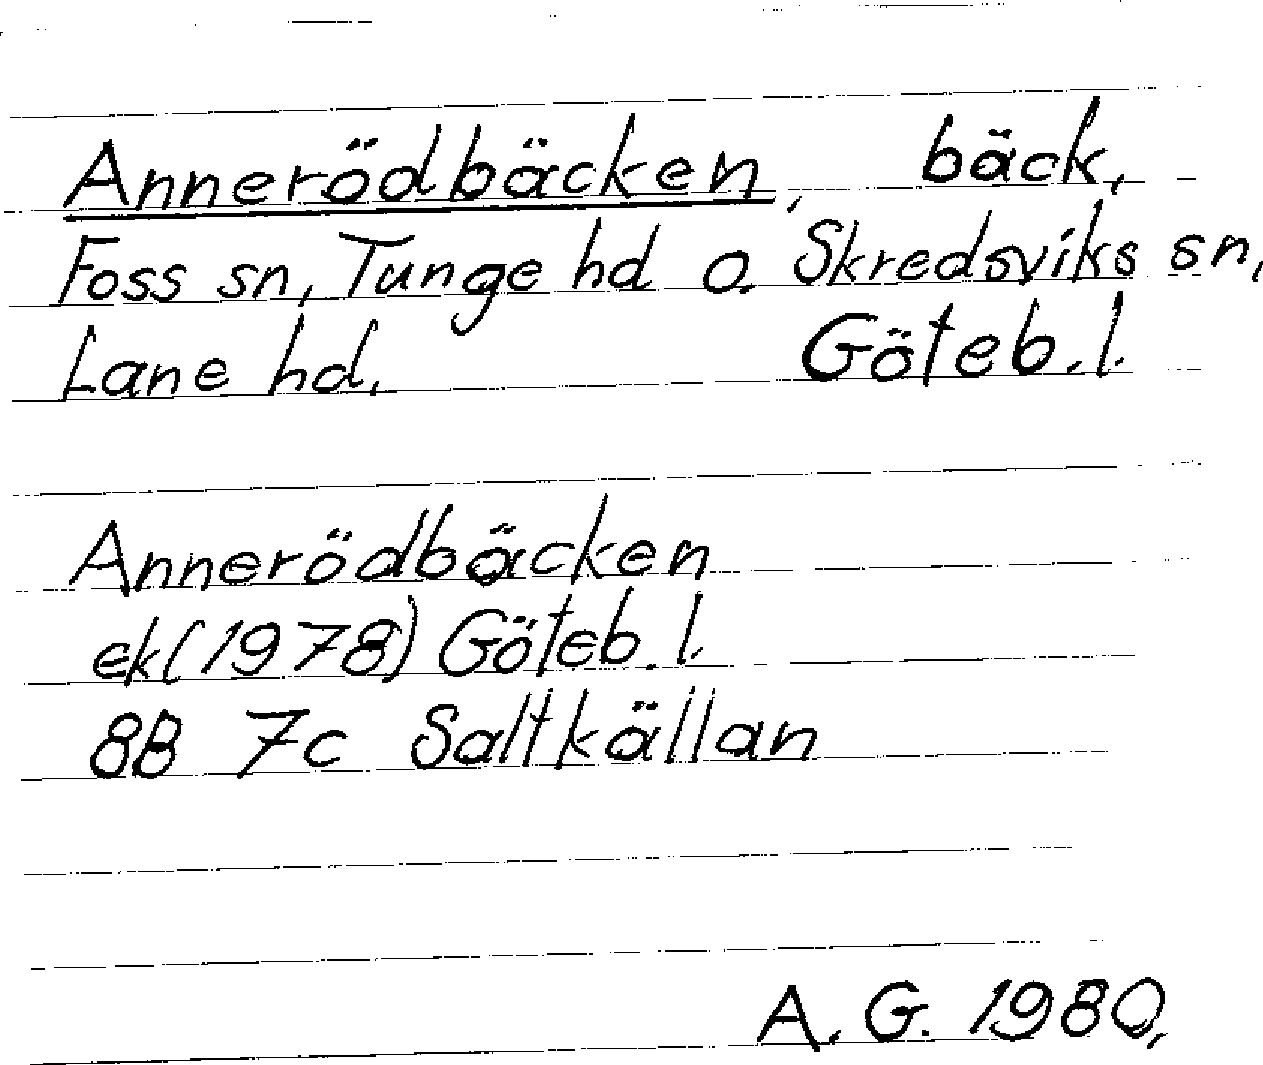 Annerödbäcken, bäck,
Foss sn, Tunge hd o. Skredsviks sn,
Lane hd. Göteb. l.
Annerödbäcken
ek (1978) Göteb. l.
8B 7c Saltkällan
A. G. 1980.